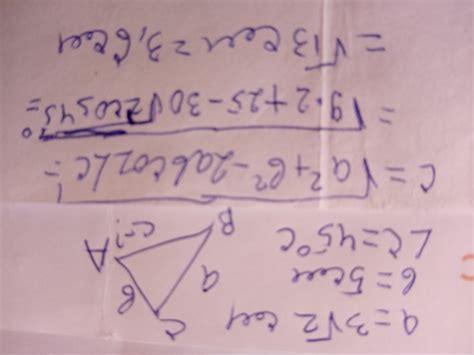 a=3√2 см
b=5см
∠C=45°C
C
b
a
A
c-?
B
c=√a²+b²-2abcos∠C=
=√9·2+25-30√2cos45°=
=√13 см=3,6см